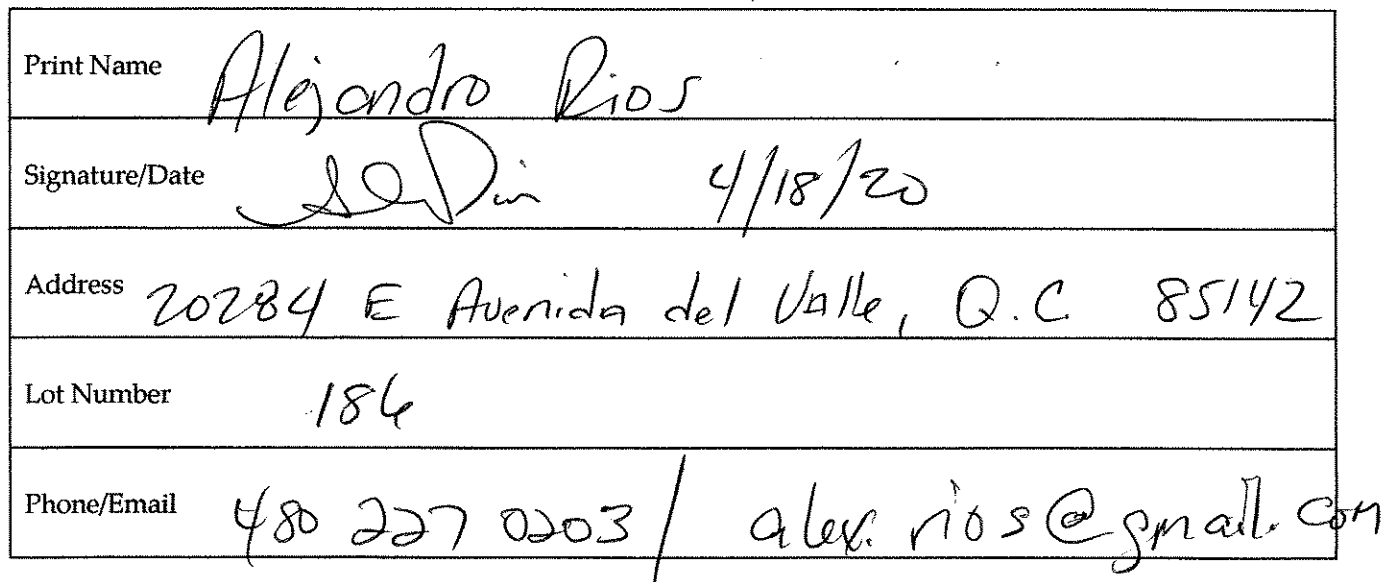 Print Name Alejandro Rios
Signature/Date 4/18/20
Address 20284 E Avenida del Valle, Q.C 85142
Lot Number 186
Phone/Email 480 227 0203 / alex.rios@gmail.com